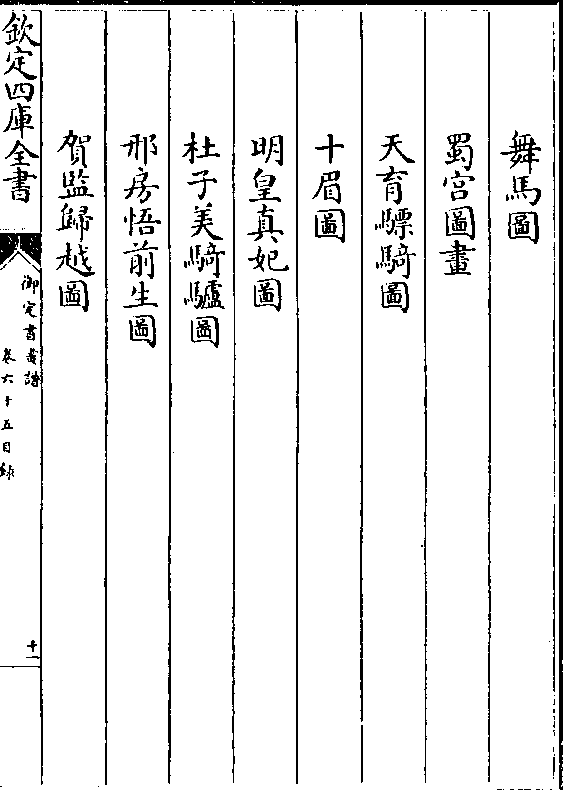 舞馬圖
蜀宫圖畫
天育驃騎圖
十眉圖
明皇真妃圖
杜子美騎驢圖
邢房悟前生圖
賀監歸越圖
欽定四庫全書
御定書畫譜
卷六十五目録
十一